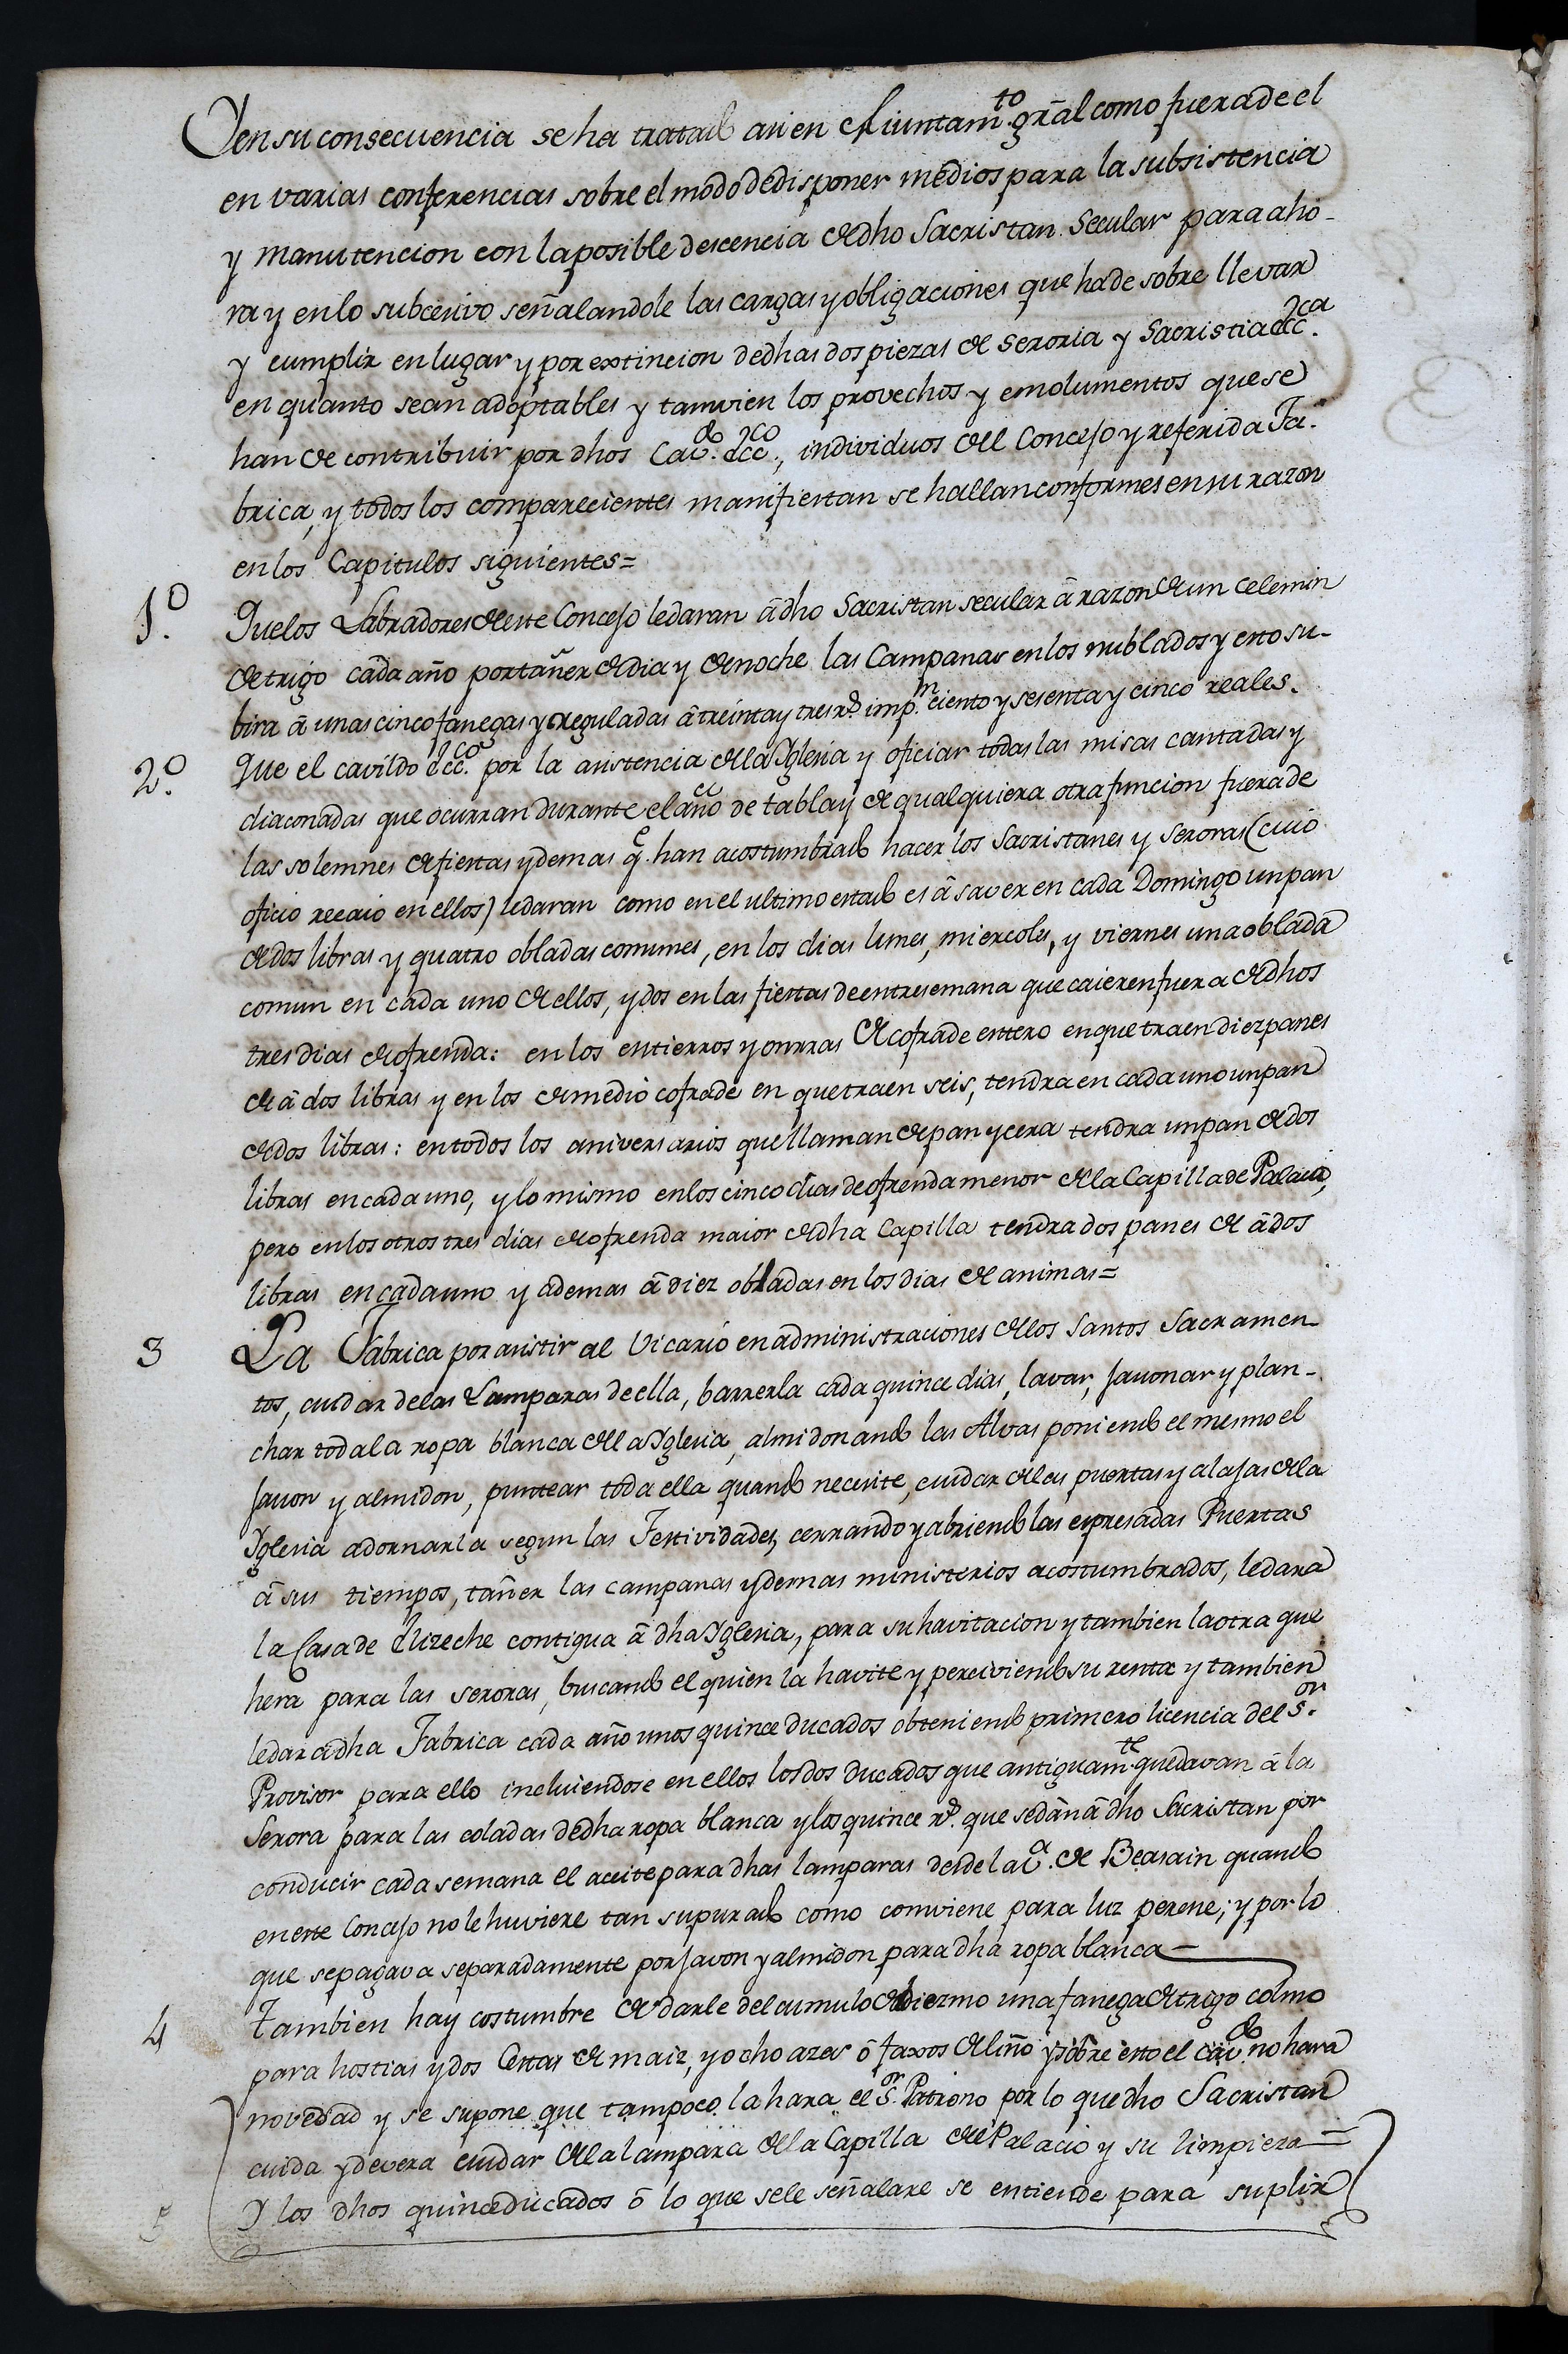 Y en su consecuencia se ha tratado asi en Aiuntam.to grãl como fuera de el
en varias conferencias sobre el modo de disponer medios para la subsistencia
y manutencion con la posible descencia de dho Sacristan Secular para aho-
ra y en lo subcesivo señalandole las cargas y obligaciones que ha de sobre llevar
y cumplir en lugar y por extincion de dhas dos piezas de seroria y Sacristia ecc.ca
en quanto sean adoptables y tanvien los provechos y emolumentos que se
han de contribuir por dhos Cav.do ecc.co, individuos del Concejo y referida Fa-
brica, y todos los comparecientes manifiestan se hallan conformes en su razon
en los Capitulos siguientes=
1.o Que los Labradores de este Concejo le daran â dho Sacristan secular â razon de un celemin
de trigo cada año por tañer de dia y de noche las Campanas en los nublados y esto su-
bira â unas cinco fanegas y reguladas â treinta y tres r.s imp.n ciento y sesenta y cinco reales.
2.o Que el cavildo ecc.co por la asistencia de la Yglesia y oficiar todas las misas cantadas y
diaconadas que ocurran durante el año de tabla y de qualquiera otra funcion fuera de
las solemnes de fiestas y demas q.e han acostumbrado hacer los Sacristanes y seroras (cuio
oficio recaio en ellos) le daran como en el ultimo estado es â saver en cada Domingo un pan
de dos libras y quatro obladas comunes, en los dias lunes, miercoles, y viernes una oblada
comun en cada uno de ellos, y dos en las fiestas de entresemana que caieren fuera de dhos
tres dias de ofrenda: en los entierros y onrras de cofrade entero en que traen diez panes
de â dos libras y en los de medio cofrade en que traen seis, tendra en cada uno un pan
de dos libras: en todos los aniversarios que llaman de pan y cera tendra un pan de dos
libras en cada uno, y lo mismo en los cinco dias de ofrenda menor de la Capilla de Palacio,
pero en los otros tres dias de ofrenda maior de dha Capilla tendra dos panes de â dos
libras en cada uno y ademas â diez obladas en los dias de animas=
3 La Fabrica por asistir al Vicario en administraciones de los Santos Sacramen-
tos, cuidar de las Lamparas de ella, barrerla cada quince dias, lavar, javonar y plan-
char toda la ropa blanca de la Yglesia, almidonando las Alvas poniendo el mesmo el
javon y almidon, puntear toda ella quando necesite, cuidar de las puertas y alajas de la
Yglesia adornarla segun las Festividades, cerrando y abriendo las espresadas Puertas
â sus tiempos, tañer las campanas y demas ministerios acostumbrados, le dara
la Casa de Elizeche contigua â dha Yglesia, para su havitacion y tambien la otra que
hera para las seroras, buscando el quien la havite y perciviendo su renta y tambien
le dara dha Fabrica cada año unos quince ducados obteniendo primero licencia del S.or
Provisor para ello incluiendose en ellos los dos ducados que antiguam.te quedavan â la
Serora para las coladas de dha ropa blanca y los quince r.s que se dan â dho Sacristan por
conducir cada semana el aceite para dhas lamparas desde la v.a de Beasain quando
en este Concejo no le huviere tan supurado como conviene para luz perene; y por lo
que se pagava separadamente por javon y almidon para dha ropa blanca
4 Tambien hay costumbre de darle del cumulo de diezmo una fanega de trigo colmo
para hostias y dos Cestas de maiz, y ocho azes ô faxos de lino y sobre esto el cav.do no hara
novedad y se supone que tampoco la hara el S.or Patrono por lo que dho Sacristan
cuida y devera cuidar de la lampara de la Capilla del Palacio y su limpieza=
5 Y los dhos quince ducados ô lo que se le señalare se entiende para suplir